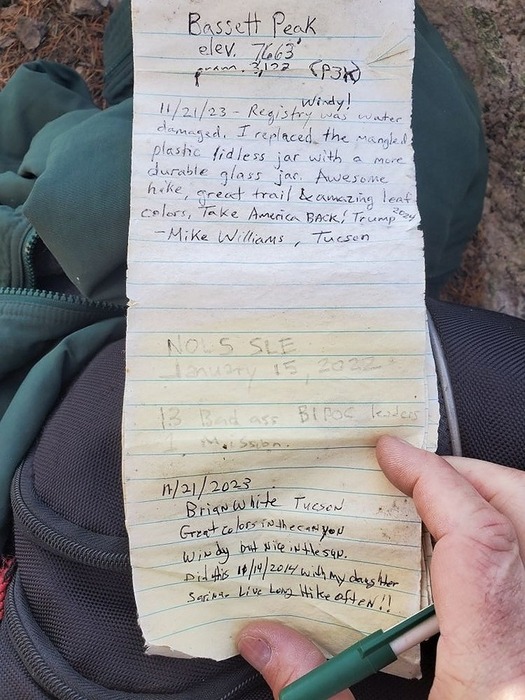 Bassett Peak
elev. 7663'
prom. 2,122 (P3K)
Windy!
11/21/23 - Registry was water
damaged. I replaced the mangled
plastic lidless jar with a more
durable glass jar. Awesome
hike, great trail & amazing leaf
colors, Take America BACK! Trump 2024
- Mike Williams, Tucson
NOLS SLE
January 15, 2022
13 Bad ass BIPOC leaders
1 Mission.
11/21/2023
Brian White Tucson
Great colors in the canyon
Windy but nice in the sun.
Did this 10/19/2014 with my daughter
Live Long Hike often!!